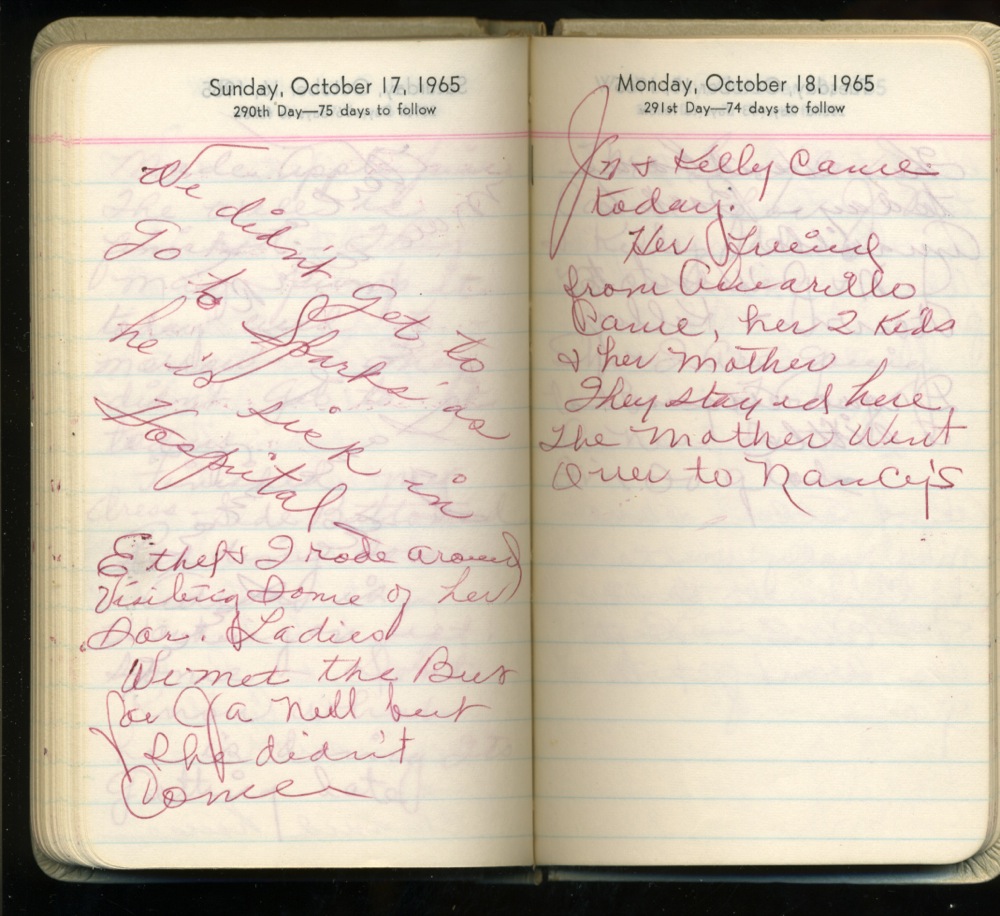 Sunday, October 17, 1965
290th Day—75 days to follow
We didn't Get to
Go to Sparks as
he is sick in
Hospital—
Ethel & I rode around
Visiting Some of her
Dar. Ladies
We met the Bus
for Ja Nell but
She didn't
Come
Monday, October 18, 1965
291st Day—74 days to follow
Jn & Kelly Came
today.
Her friend
from Amarillo
Came, her 2 Kids
& her Mother
They stayed here,
The Mother Went
Over to Nancy's